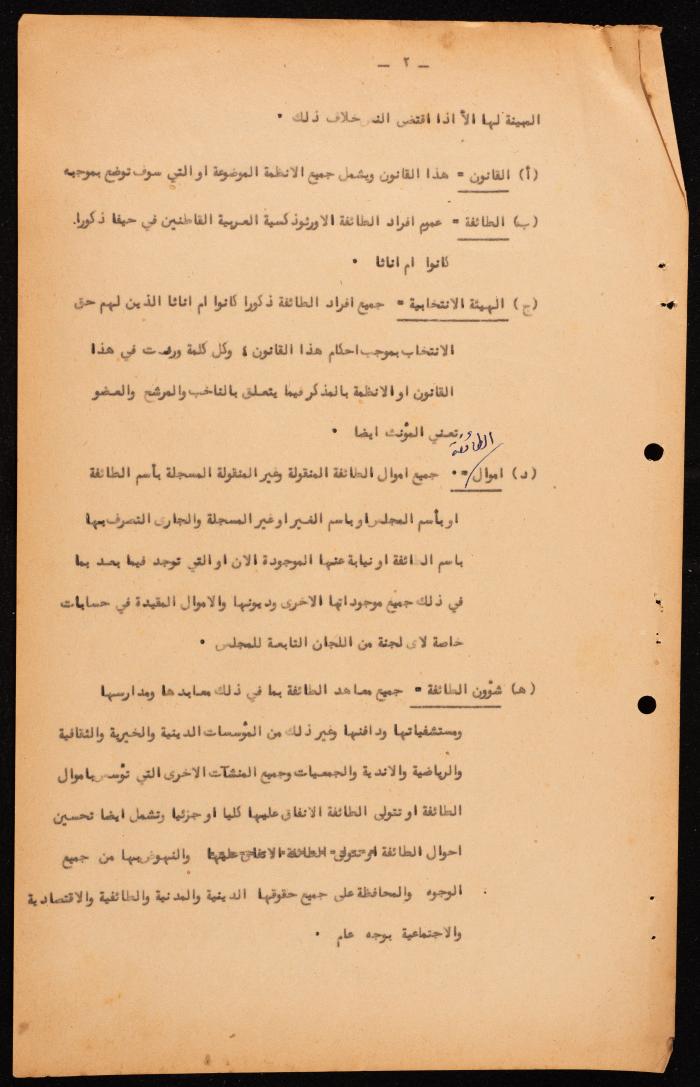 — ٢ —
المبينة لها الاّ اذا اقتضى النص خلاف ذلك •
(أ) القانون = هذا القانون ويشمل جميع الانظمة الموضوعة او التي سوف توضع بموجبه
(ب) الطائفة = عموم افراد الطائفة الاورثوذكسية العربية القاطنين في حيفا ذكورا.
كانوا ام اناثا •
(ج) الهيئة الانتخابية = جميع افراد الطائفة ذكورا كانوا ام اناثا الذين لهم حق
الانتخاب بموجب احكام هذا القانون ، وكل كلمة وردت في هذا
القانون او الانظمة بالمذكر فيما يتعلق بالناخب والمرشح والعضو
تعني المؤنث ايضا •
الطائفة
(د) اموال = • جميع اموال الطائفة المنقولة وغير المنقولة المسجلة بأسم الطائفة
او بأسم المجلس او باسم الغير او غير المسجلة والجارى التصرف بها
باسم الطائفة او نيابة عنها الموجودة الان او التي توجد فيما بعد بما
في ذلك جميع موجوداتها الاخرى وديونها والاموال المقيدة في حسابات
خاصة لاى لجنة من اللجان التابعة للمجلس •
(هـ) شؤون الطائفة = جميع معاهد الطائفة بما في ذلك معابدها ومدارسها
ومستشفياتها ودافنها وغير ذلك من المؤسسات الدينية والخيرية والثقافية
والرياضية والاندية والجمعيات وجميع المنشآت الاخرى التي تؤسس باموال
الطائفة او تتولى الطائفة الانفاق عليها كليا او جزئيا وتشمل ايضا تحسين
احوال الطائفة او تتولى الطائفة الانفاق عليها والنهوض بها من جميع
الوجوه والمحافظة على جميع حقوقها الدينية والمدنية والطائفية والاقتصادية
والاجتماعية بوجه عام •